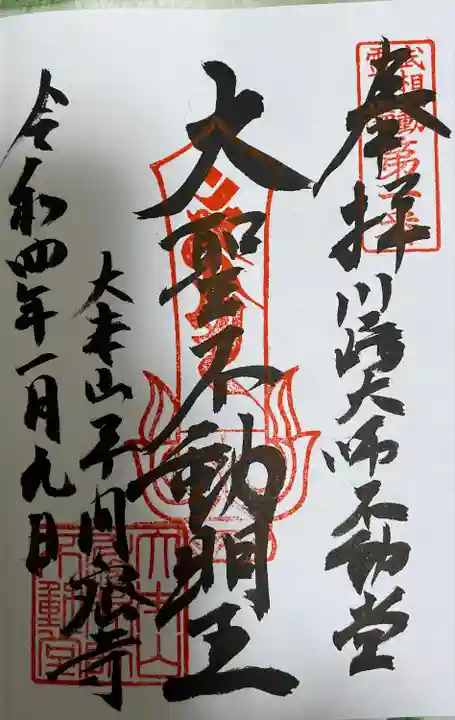 奉拝 川崎大師不動堂
大聖不動明王
大本山平間寺
令和四年一月九日
武相不動霊場第一番
大本山
不動堂